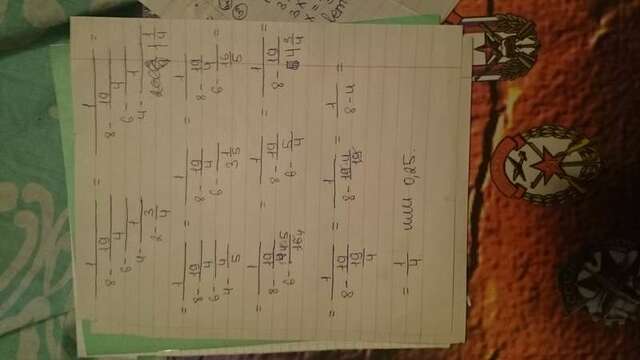 1/(8 - 19/(6 - 4/(4 - 1/(2 - 3/4)))) = 1/(8 - 19/(6 - 4/(4 - 1/(1 1/4)))) =
= 1/(8 - 19/(6 - 4/(4 - 4/5))) = 1/(8 - 19/(6 - 4/(3 1/5))) = 1/(8 - 19/(6 - 4/(16/5))) =
= 1/(8 - 19/(6 - 4·5/16)) = 1/(8 - 19/(6 - 5/4)) = 1/(8 - 19/(4 3/4)) =
= 1/(8 - 19/(19/4)) = 1/(8 - 19·4/19) = 1/(8 - 4) =
= 1/4 или 0,25.